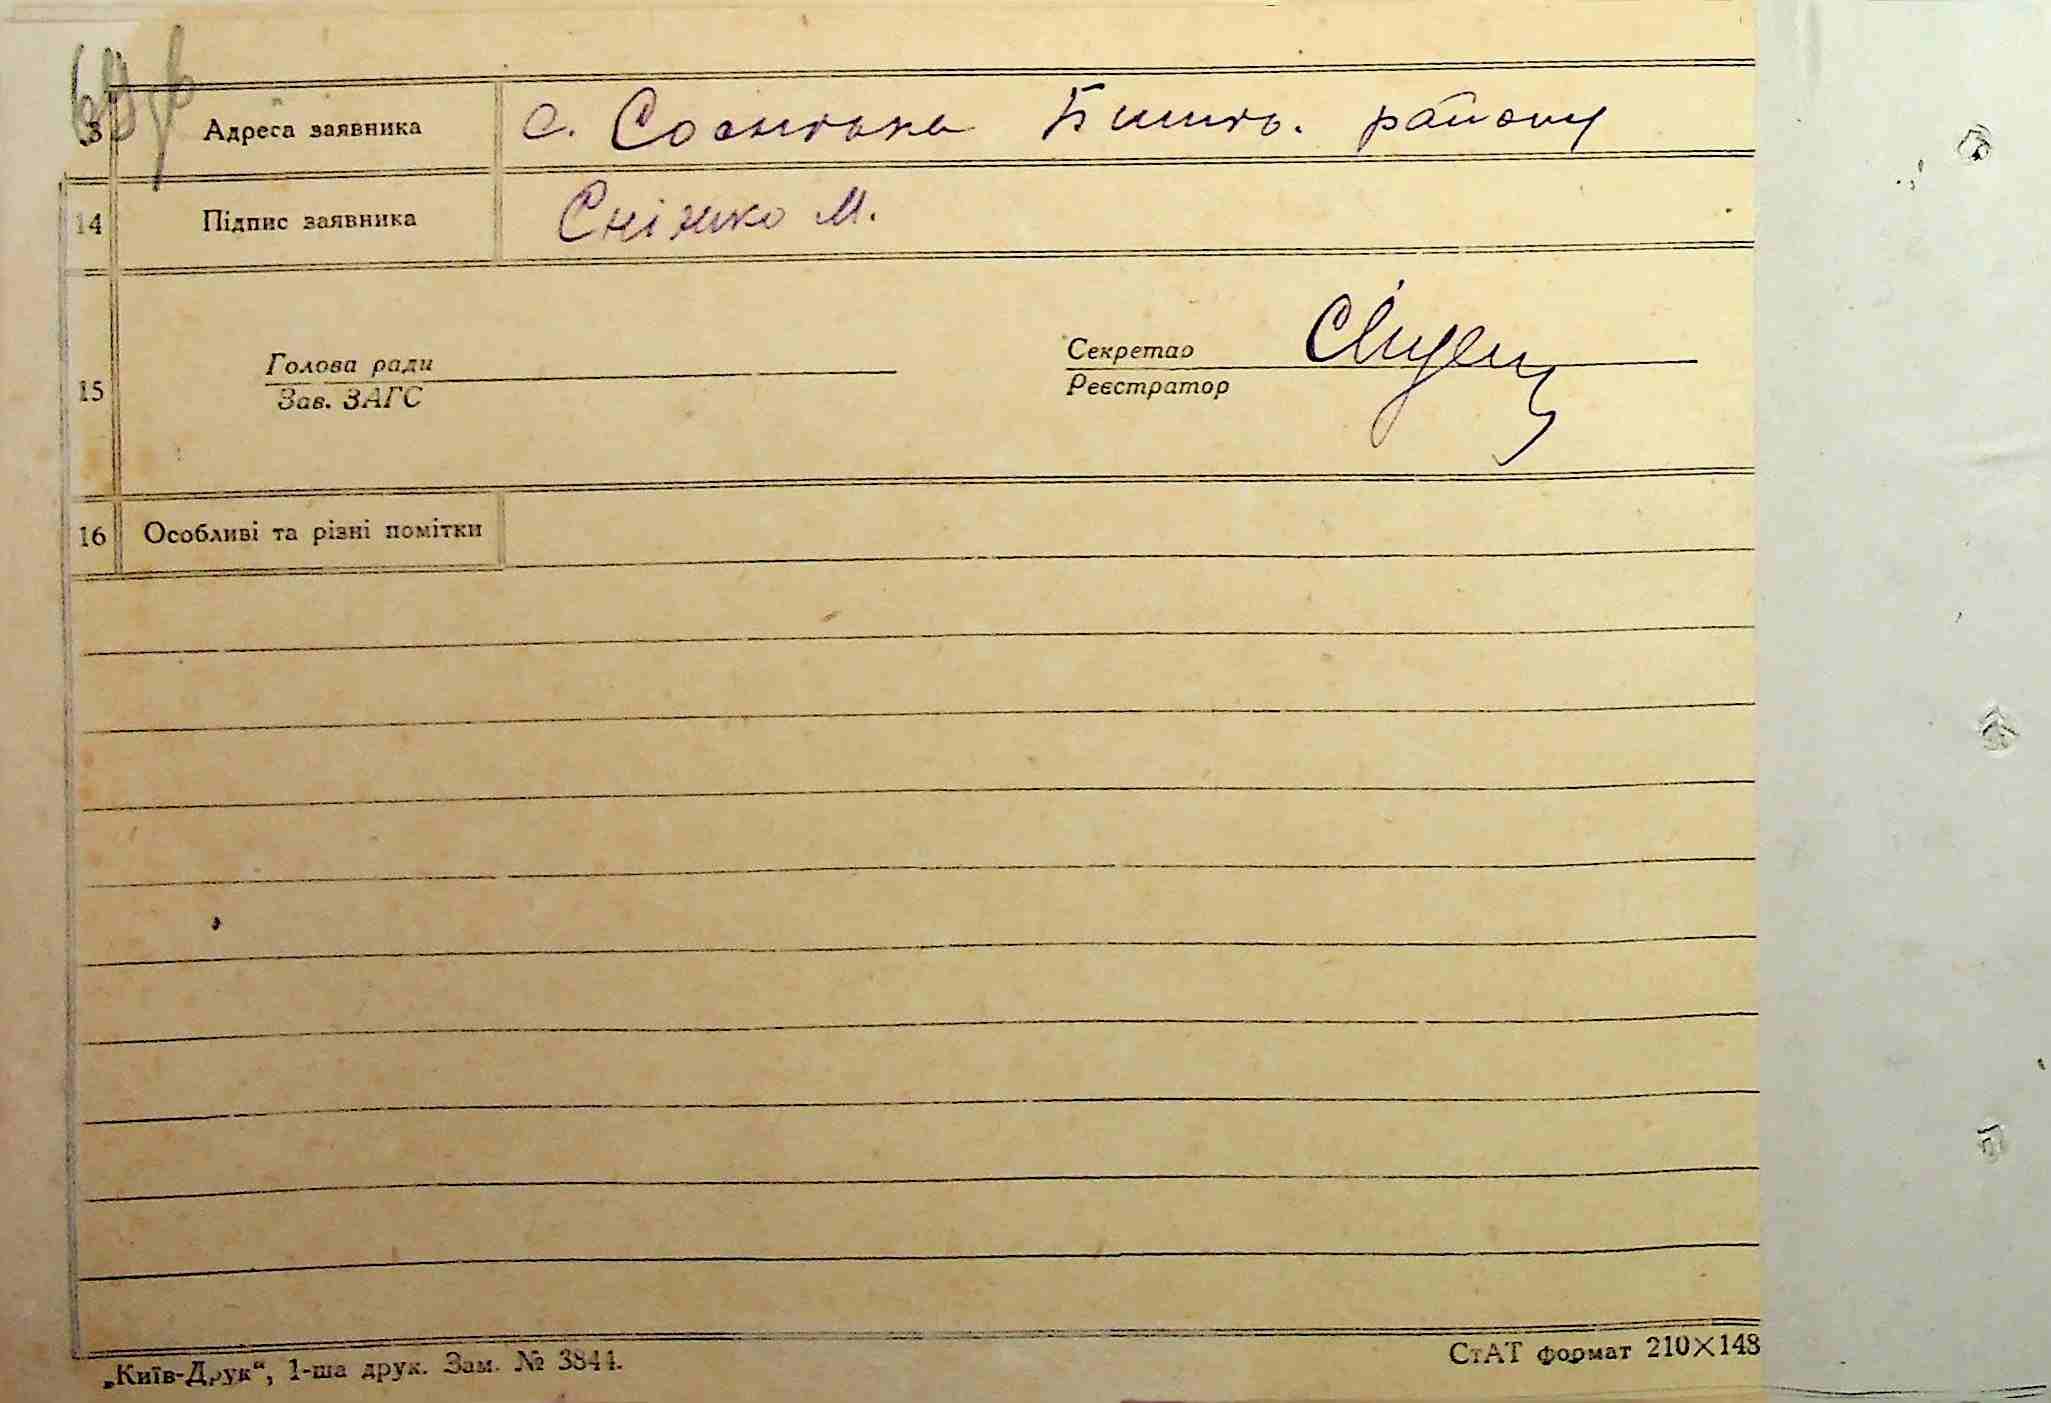 13 Адреса заявника с. Соснівка Бишів. району
14 Підпис заявника Сніжко М.
Голова ради Секретар
15 Зав. ЗАГС Реєстратор
16 Особливі та різні помітки
„Київ-Друк“, 1-ша друк. Зам. № 3844. СтАТ формат 210×148